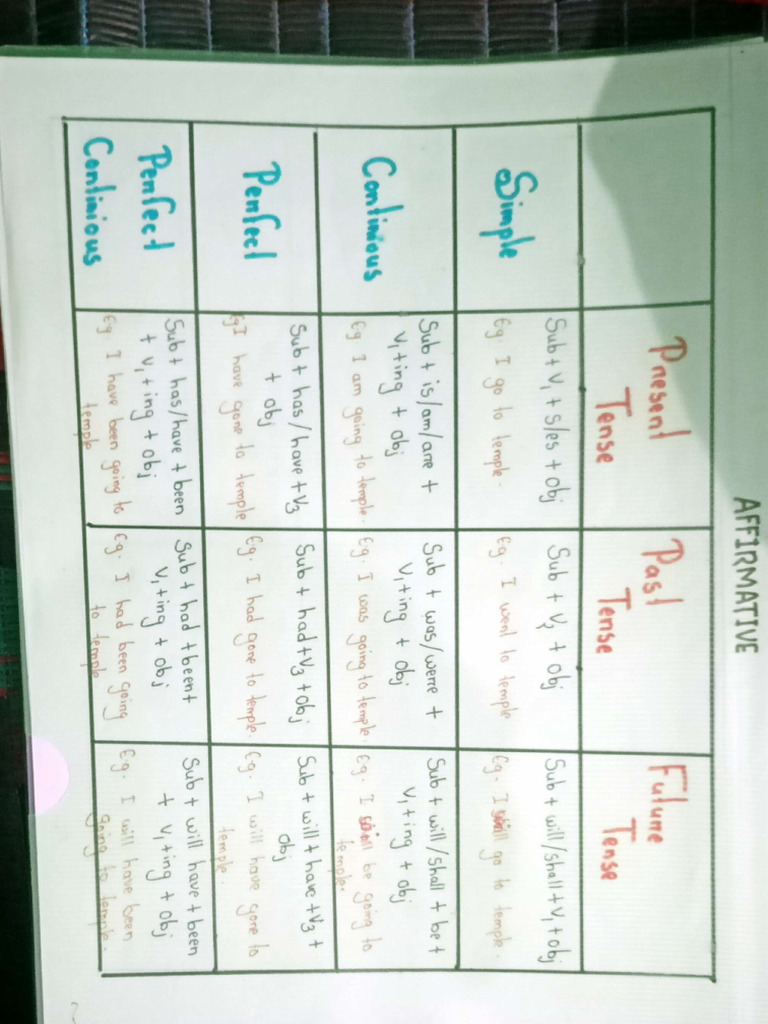 AFFIRMATIVE
Present
Tense
Past
Tense
Future
Tense
Simple
Sub + V1 + s/es + obj
Eg. I go to temple.
Sub + V2 + obj
Eg. I went to temple
Sub + will/shall + V1 + obj
Eg. I shall go to temple.
Continious
Sub + is/am/are +
V1 + ing + obj
Eg I am going to temple.
Sub + was/were +
V1 + ing + obj
Eg. I was going to temple
Sub + will/shall + be +
V1 + ing + obj
Eg. I shall be going to
temple.
Perfect
Sub + has/have + V3
+ obj
Eg I have gone to temple
Sub + had + V3 + obj
Eg. I had gone to temple.
Sub + will + have + V3 +
obj
Eg. I will have gone to
temple.
Perfect
Continious
Sub + has/have + been
+ V1 + ing + obj
Eg. I have been going to
temple
Sub + had + been +
V1 + ing + obj
Eg. I had been going
to temple.
Sub + will have + been
+ V1 + ing + obj
Eg. I will have been
going to temple.